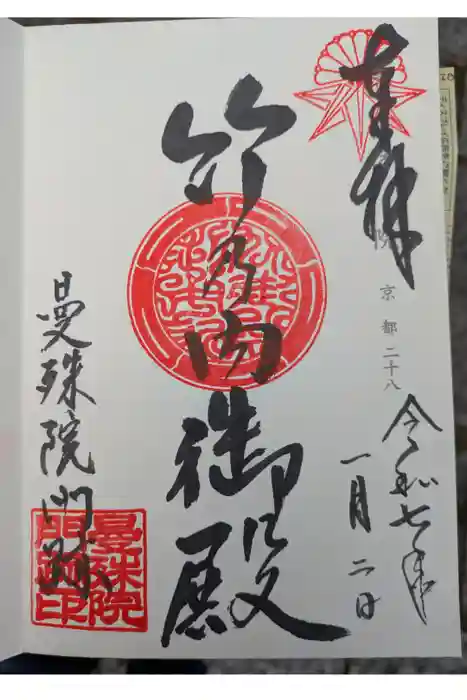 奉拝
院
京都二十八
令和七年
一月二日
竹乃内御殿
曼殊院門跡
曼殊院
門跡印